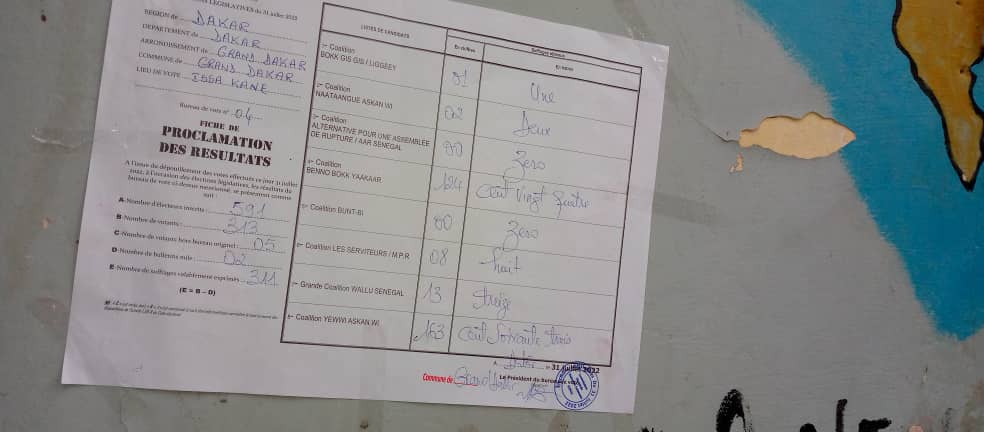 LEGISLATIVES du 31 juillet 2022
REGION de DAKAR
DEPARTEMENT de DAKAR
ARRONDISSEMENT de GRAND DAKAR
COMMUNE de GRAND DAKAR
LIEU DE VOTE ISSA KANE
Bureau de vote n° 04
FICHE DE
PROCLAMATION
DES RESULTATS
A l'issue du dépouillement des votes effectués ce jour 31 juillet
2022, à l'occasion des élections législatives, les résultats du
bureau de vote ci-dessus mentionné, se présentent comme
suit :
A-Nombre d'électeurs inscrits : 591
B-Nombre de votants : 313
C-Nombre de votants hors bureau originel : 05
D-Nombre de bulletins nuls : 02
E-Nombre de suffrages valablement exprimés : 311
(E = B – D)
LISTES DE CANDIDATS
Suffrages obtenus
En chiffres
En lettres
Coalition
BOKK GIS GIS / LIGGEEY
01
Une
Coalition
NAATAANGUE ASKAN WI
02
Deux
Coalition
ALTERNATIVE POUR UNE ASSEMBLEE
DE RUPTURE / AAR SENEGAL
00
Zero
Coalition
BENNO BOKK YAAKAAR
124
Cent Vingt quatre
Coalition BUNT-BI
00
Zero
Coalition LES SERVITEURS / M.P.R
08
huit
Grande Coalition WALLU SENEGAL
13
treize
Coalition YEWWI ASKAN WI
163
Cent Soixante trois
A Dakar 31 juillet 2022
Commune de Grand Dakar
Le Président du Bureau de vote